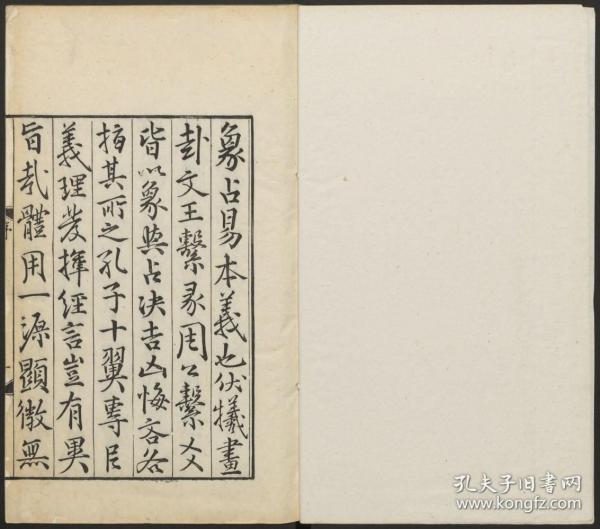 象占易本義也伏犧畫
卦文王繫彖周公繫爻
皆以象與占決吉凶悔吝各
指其所之孔子十翼專民
義理發揮經言豈有異
旨哉體用一源顯微無
序
一
孔夫子旧书网
www.kongfz.com